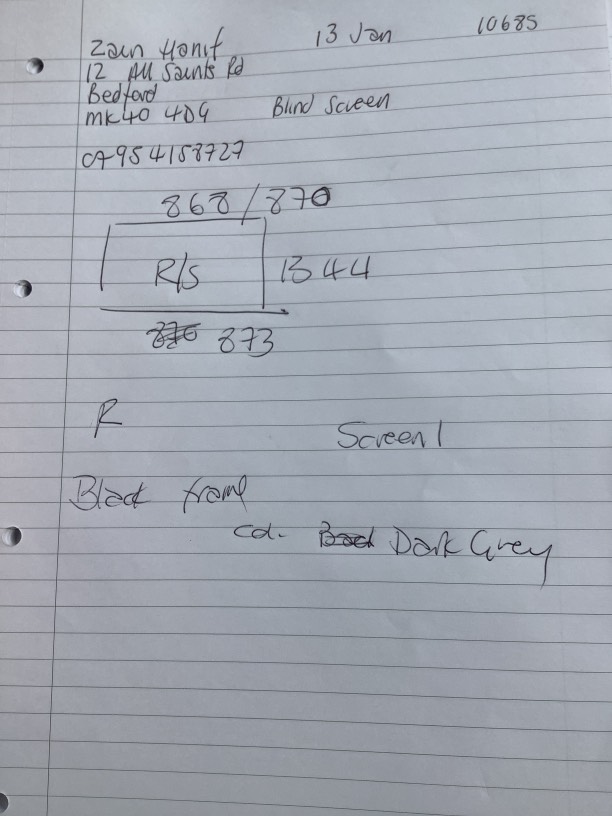 Zain Hanif 13 Jan 10685
12 All Saints Rd
Bedford
MK40 4DG Blind Screen
07954158727
868/870
R/S 1344
873
R
Screen 1
Black frame
Col. Dark Grey